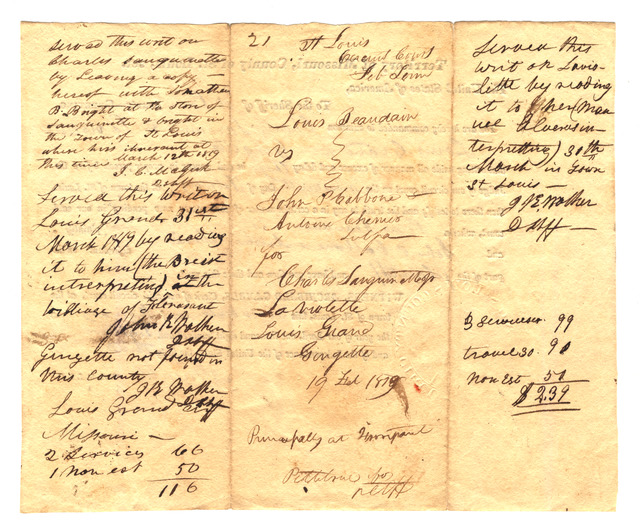 Served this writ on
Charles Sanguinette
by Leaving a copy —
hereof with Jonathan
B. Bright at the Stor of
Sanguinette & bright in
the Town of St Louis
when his itinerant at
this time March 12th 1819
J. C.
Dshff
Served this writ on
Louis Grend 31st
March 1819 by reading
it to him (the Breist
intrerpreting) in at the
villiage of Florasant
John K Walker
Dshff
Gingette not found in
this County
J K Walker
Louis Grand Dshff
Missouri —
2 Services 66
1 Non est 50
116
21 St Louis
Circuit Court
Feb Term
Louis Beaudain
vs
John P Cabbone —
Antoine Chenier
Subpa
for
Charles Sanguin
La violette
Louis Grand
Gingette
19 Feb 1819
Principally at
Served this
writ on Lavio-
lette by reading
it to
interpretting) 30th
March in Town
St Louis —
J K Walker
Dshff —
3 Services 99
travel 30. 90
Non Est 50
$ 2.39